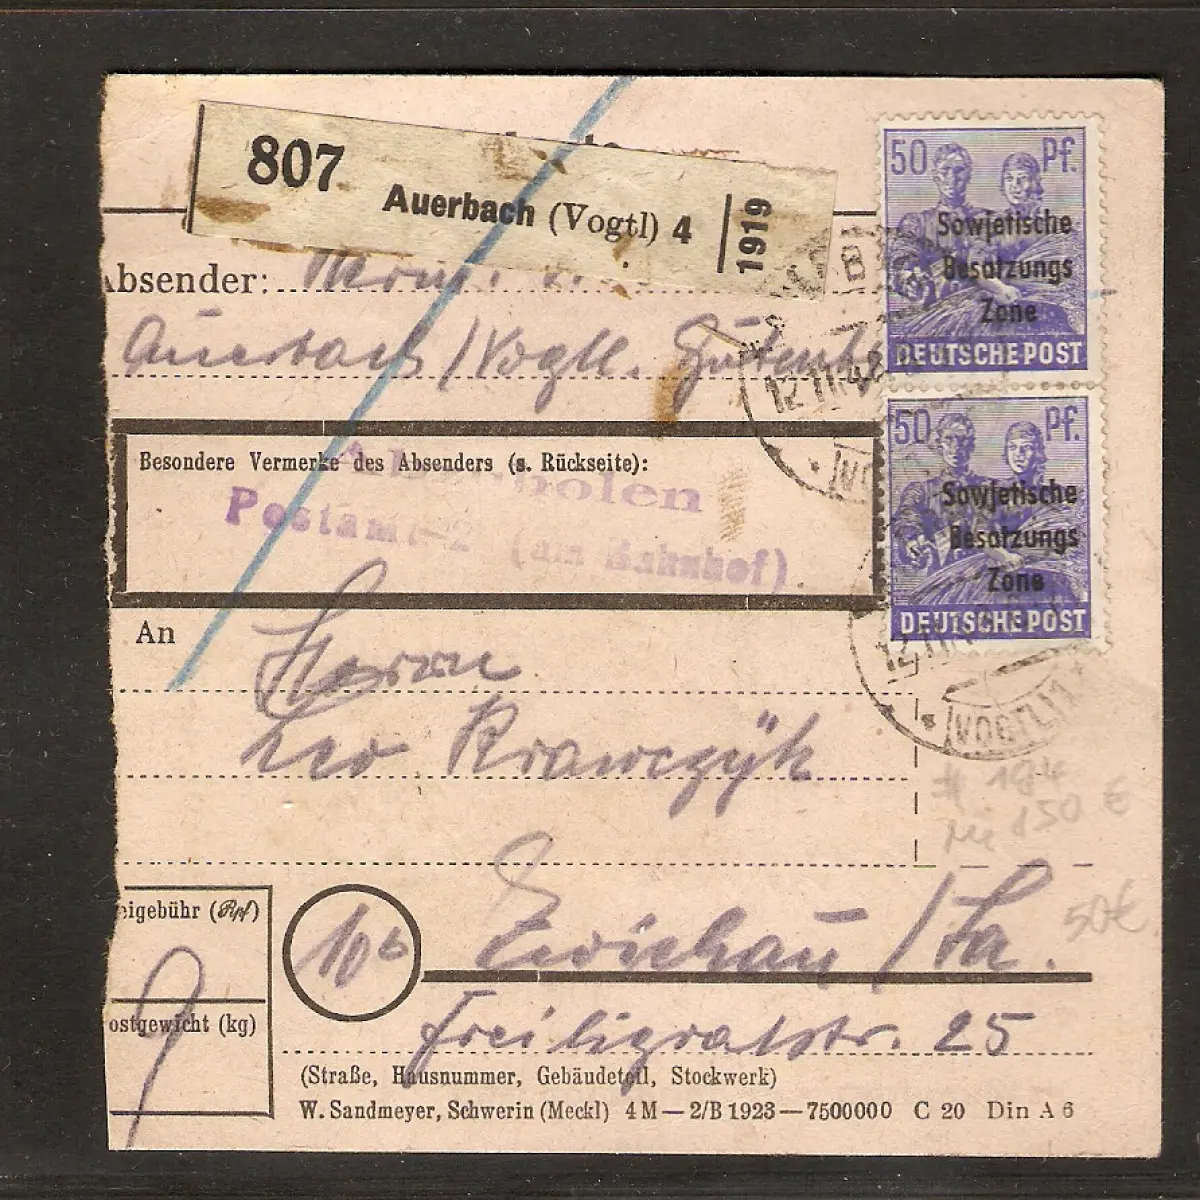 807 Auerbach (Vogtl) 4 1919
50 Pf.
Sowjetische
Besatzungs
Zone
DEUTSCHE POST
Absender:
Auerbach/Vogtl.
12.11.48
50 Pf.
Sowjetische
Besatzungs
Zone
DEUTSCHE POST
Besondere Vermerke des Absenders (s. Rückseite):
Abzuholen
Postamt 2 (am Bahnhof)
An
Herrn
VOGTL)1
Leo Krawczÿk
# 184
Mi 150 €
eigebühr (Rpf)
50€
10b
Zwickau/Sa.
ostgewicht (kg)
Freiligratstr. 25
(Straße, Hausnummer, Gebäudeteil, Stockwerk)
W. Sandmeyer, Schwerin (Meckl) 4 M — 2/B 1923 — 7500000 C 20 Din A 6